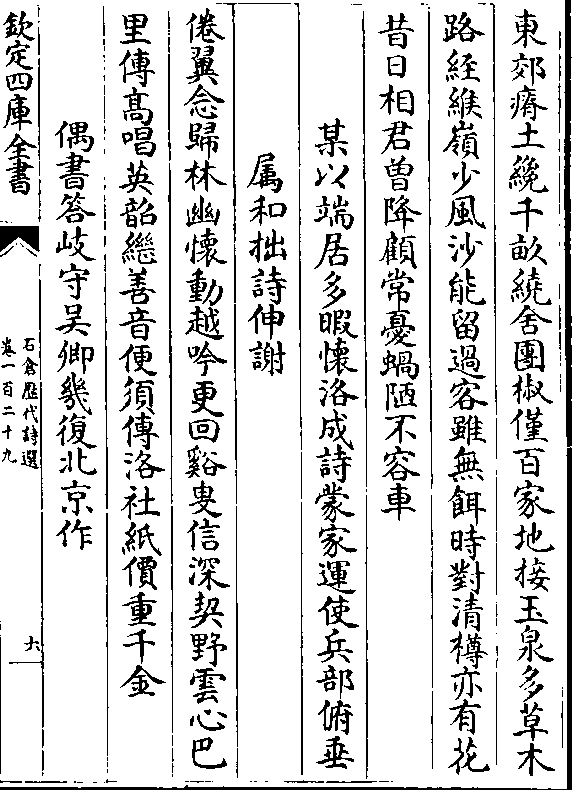 東郊瘠土纔千畝繞舍團椒僅百家地接玉泉多草木
路經緱嶺少風沙能留過客雖無餌時對清樽亦有花
昔日相君曾降顧常憂蝸陋不容車
某以端居多暇懷洛成詩蒙家運使兵部俯垂
属和拙詩伸謝
倦翼念歸林幽懷動越吟更回谿叟信深契野雲心巴
里傳髙唱英韶繼善音便須傳洛社紙價重千金
偶書答岐守吴卿幾復北京作
欽定四庫全書
石倉歷代詩選
卷一百二十九
六